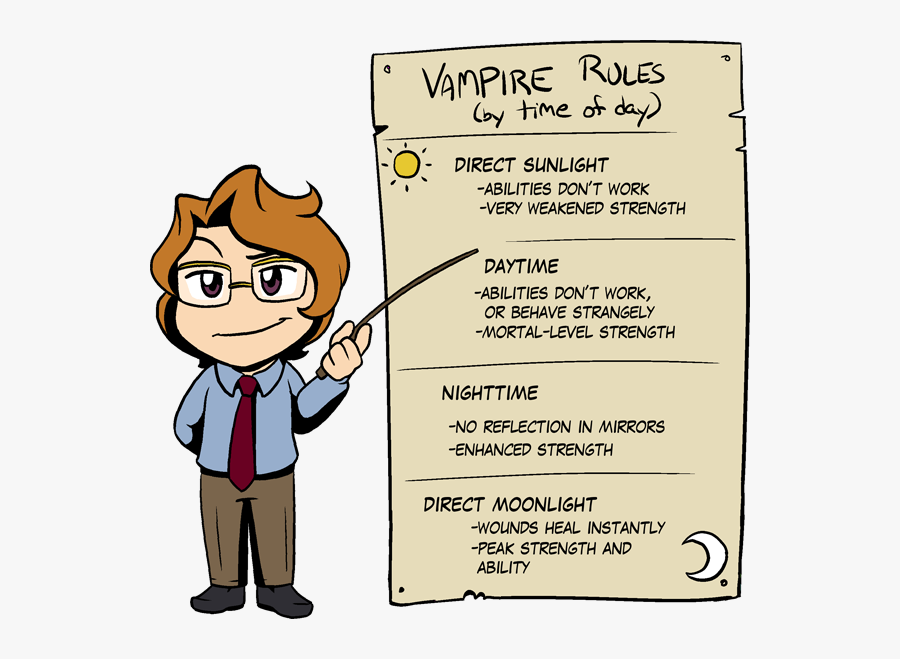 VAMPIRE RULES
(by time of day)
DIRECT SUNLIGHT
-ABILITIES DON'T WORK
-VERY WEAKENED STRENGTH
DAYTIME
-ABILITIES DON'T WORK,
OR BEHAVE STRANGELY
-MORTAL-LEVEL STRENGTH
NIGHTTIME
-NO REFLECTION IN MIRRORS
-ENHANCED STRENGTH
DIRECT MOONLIGHT
-WOUNDS HEAL INSTANTLY
-PEAK STRENGTH AND
ABILITY